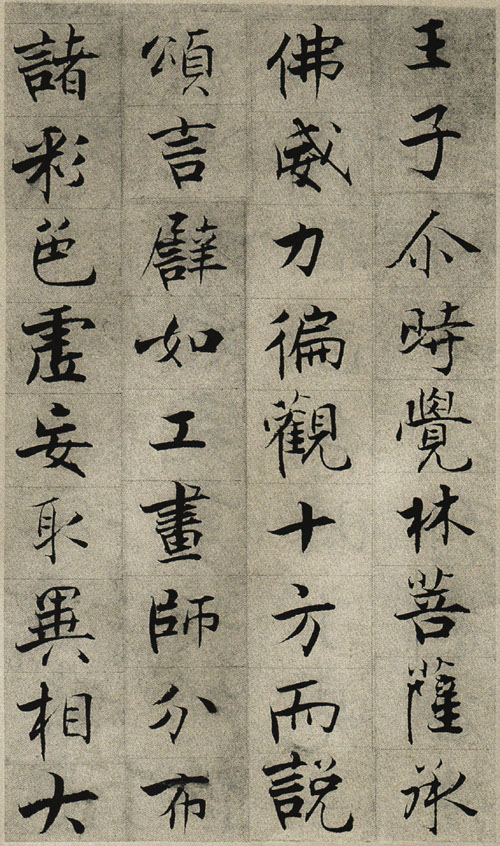 王子尒時覺林菩薩承
佛威力徧觀十方而說
頌言譬如工畫師分布
諸彩色虛妄取異相大